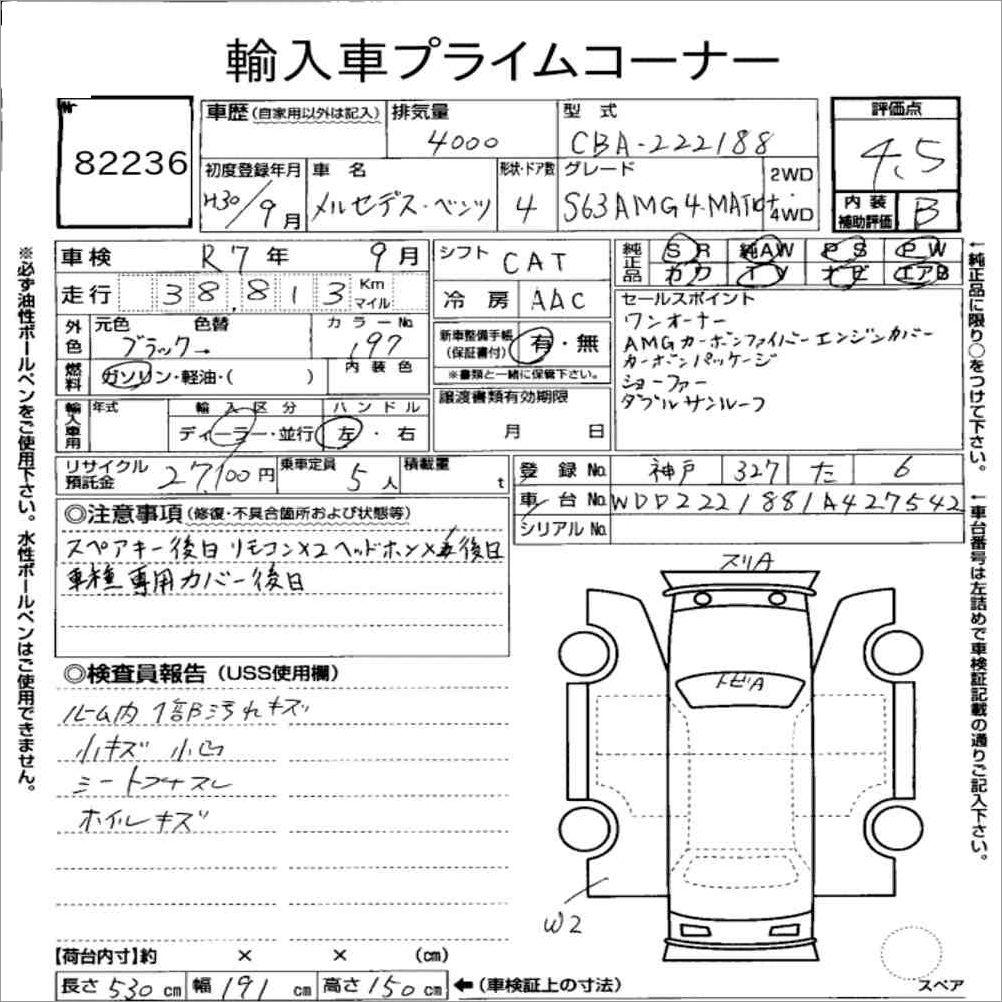 輸入車プライムコーナー
82236
車歴(自家用以外は記入) 排気量 4000 型式 CBA-222188 評価点 4.5
初度登録年月 H30/9月 車名 メルセデス・ベンツ 形状・ドア数 4 グレード S63AMG4MATIC+ 2WD 4WD
内装補助評価 B
車検 R7年 9月 シフト CAT 純正品 SR 純AW PS PW
走行 38,813 Km マイル 冷房 AAC カワ TV ナビ エアB
外色 元色 色替 ブラック→ カラーNo. 197
新車整備手帳(保証書付) 有・無
※書類と一緒に保管下さい。
燃料 ガソリン・軽油・( ) 内装色
セールスポイント
ワンオーナー
AMGカーボンファイバーエンジンカバー
カーボンパッケージ
ショーファー
ダブルサンルーフ
輸入車用 年式 輸入区分 ディーラー・並行 ハンドル 左・右
譲渡書類有効期限 月 日
リサイクル預託金 27,100円 乗車定員 5人 積載量 t
登録No. 神戸 327 た 6
車台No. WDD2221881A427542
シリアルNo.
◎注意事項(修復・不具合箇所および状態等)
スペアキー後日 リモコン×2 ヘッドホン× 後日
車検専用カバー後日
◎検査員報告(USS使用欄)
ルーム内 1部汚れキズ
小キズ 小凹
シート スレ
ホイルキズ
スリA
トビA
W2
スペア
【荷台内寸】約 × × (cm)
長さ 530 cm 幅 191 cm 高さ 150 cm ←(車検証上の寸法)
※必ず油性ボールペンをご使用下さい。水性ボールペンはご使用できません。
↑純正品に限り○をつけて下さい。
↑車台番号は左詰めで車検証記載の通りご記入下さい。